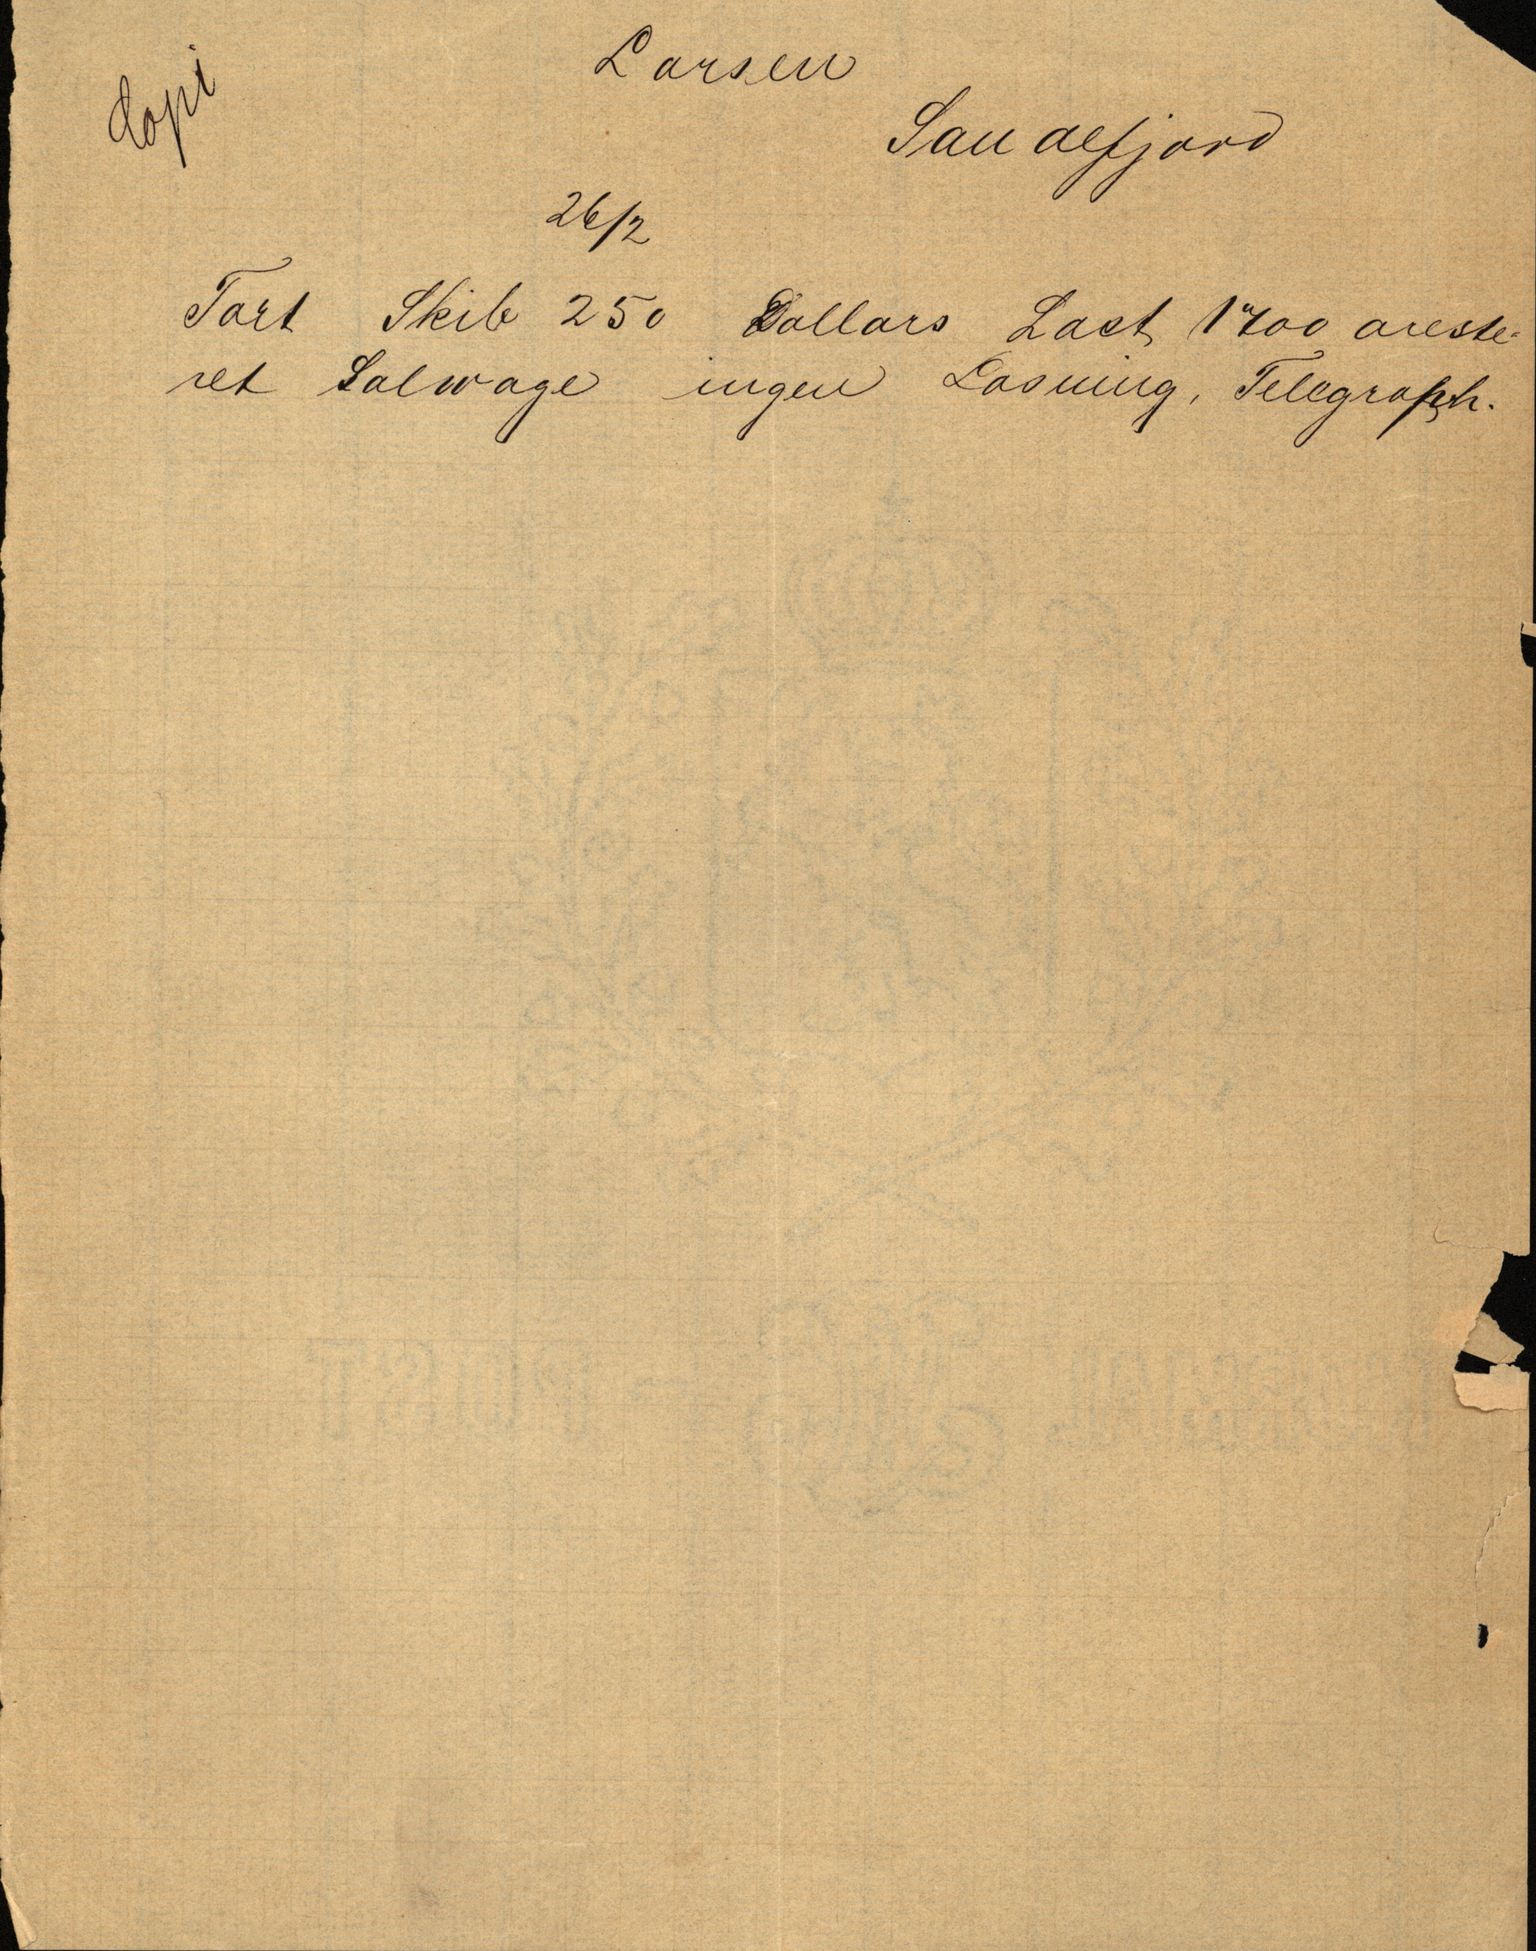 Copi
Larsen
Sandefjord
26/2
Tart Skib 250 Dollars Last 1700 areste-
ret Salwage ingen Losning, Telegraph.